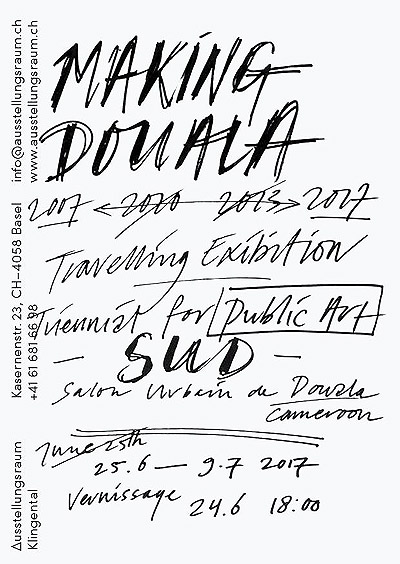 MAKING
DOUALA
2007 <-2010 2013-> 2017
Travelling Exibition
Triennial for Public Art
- SUD -
Salon Urbain de Douala
Cameroon
June 25th
25.6 — 9.7 2017
Vernissage 24.6 18:00
Ausstellungsraum
Klingental
Kasernenstr. 23, CH–4058 Basel
+41 61 681 66 98
info@ausstellungsraum.ch
www.ausstellungsraum.ch